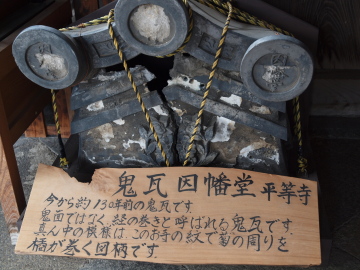 鬼瓦 因幡堂 平等寺
今から約130年前の鬼瓦です。
鬼面ではなく、経の巻きと呼ばれる鬼瓦です。
真ん中の模様は、このお寺の紋で菊の周りを
橘が巻く図柄です。